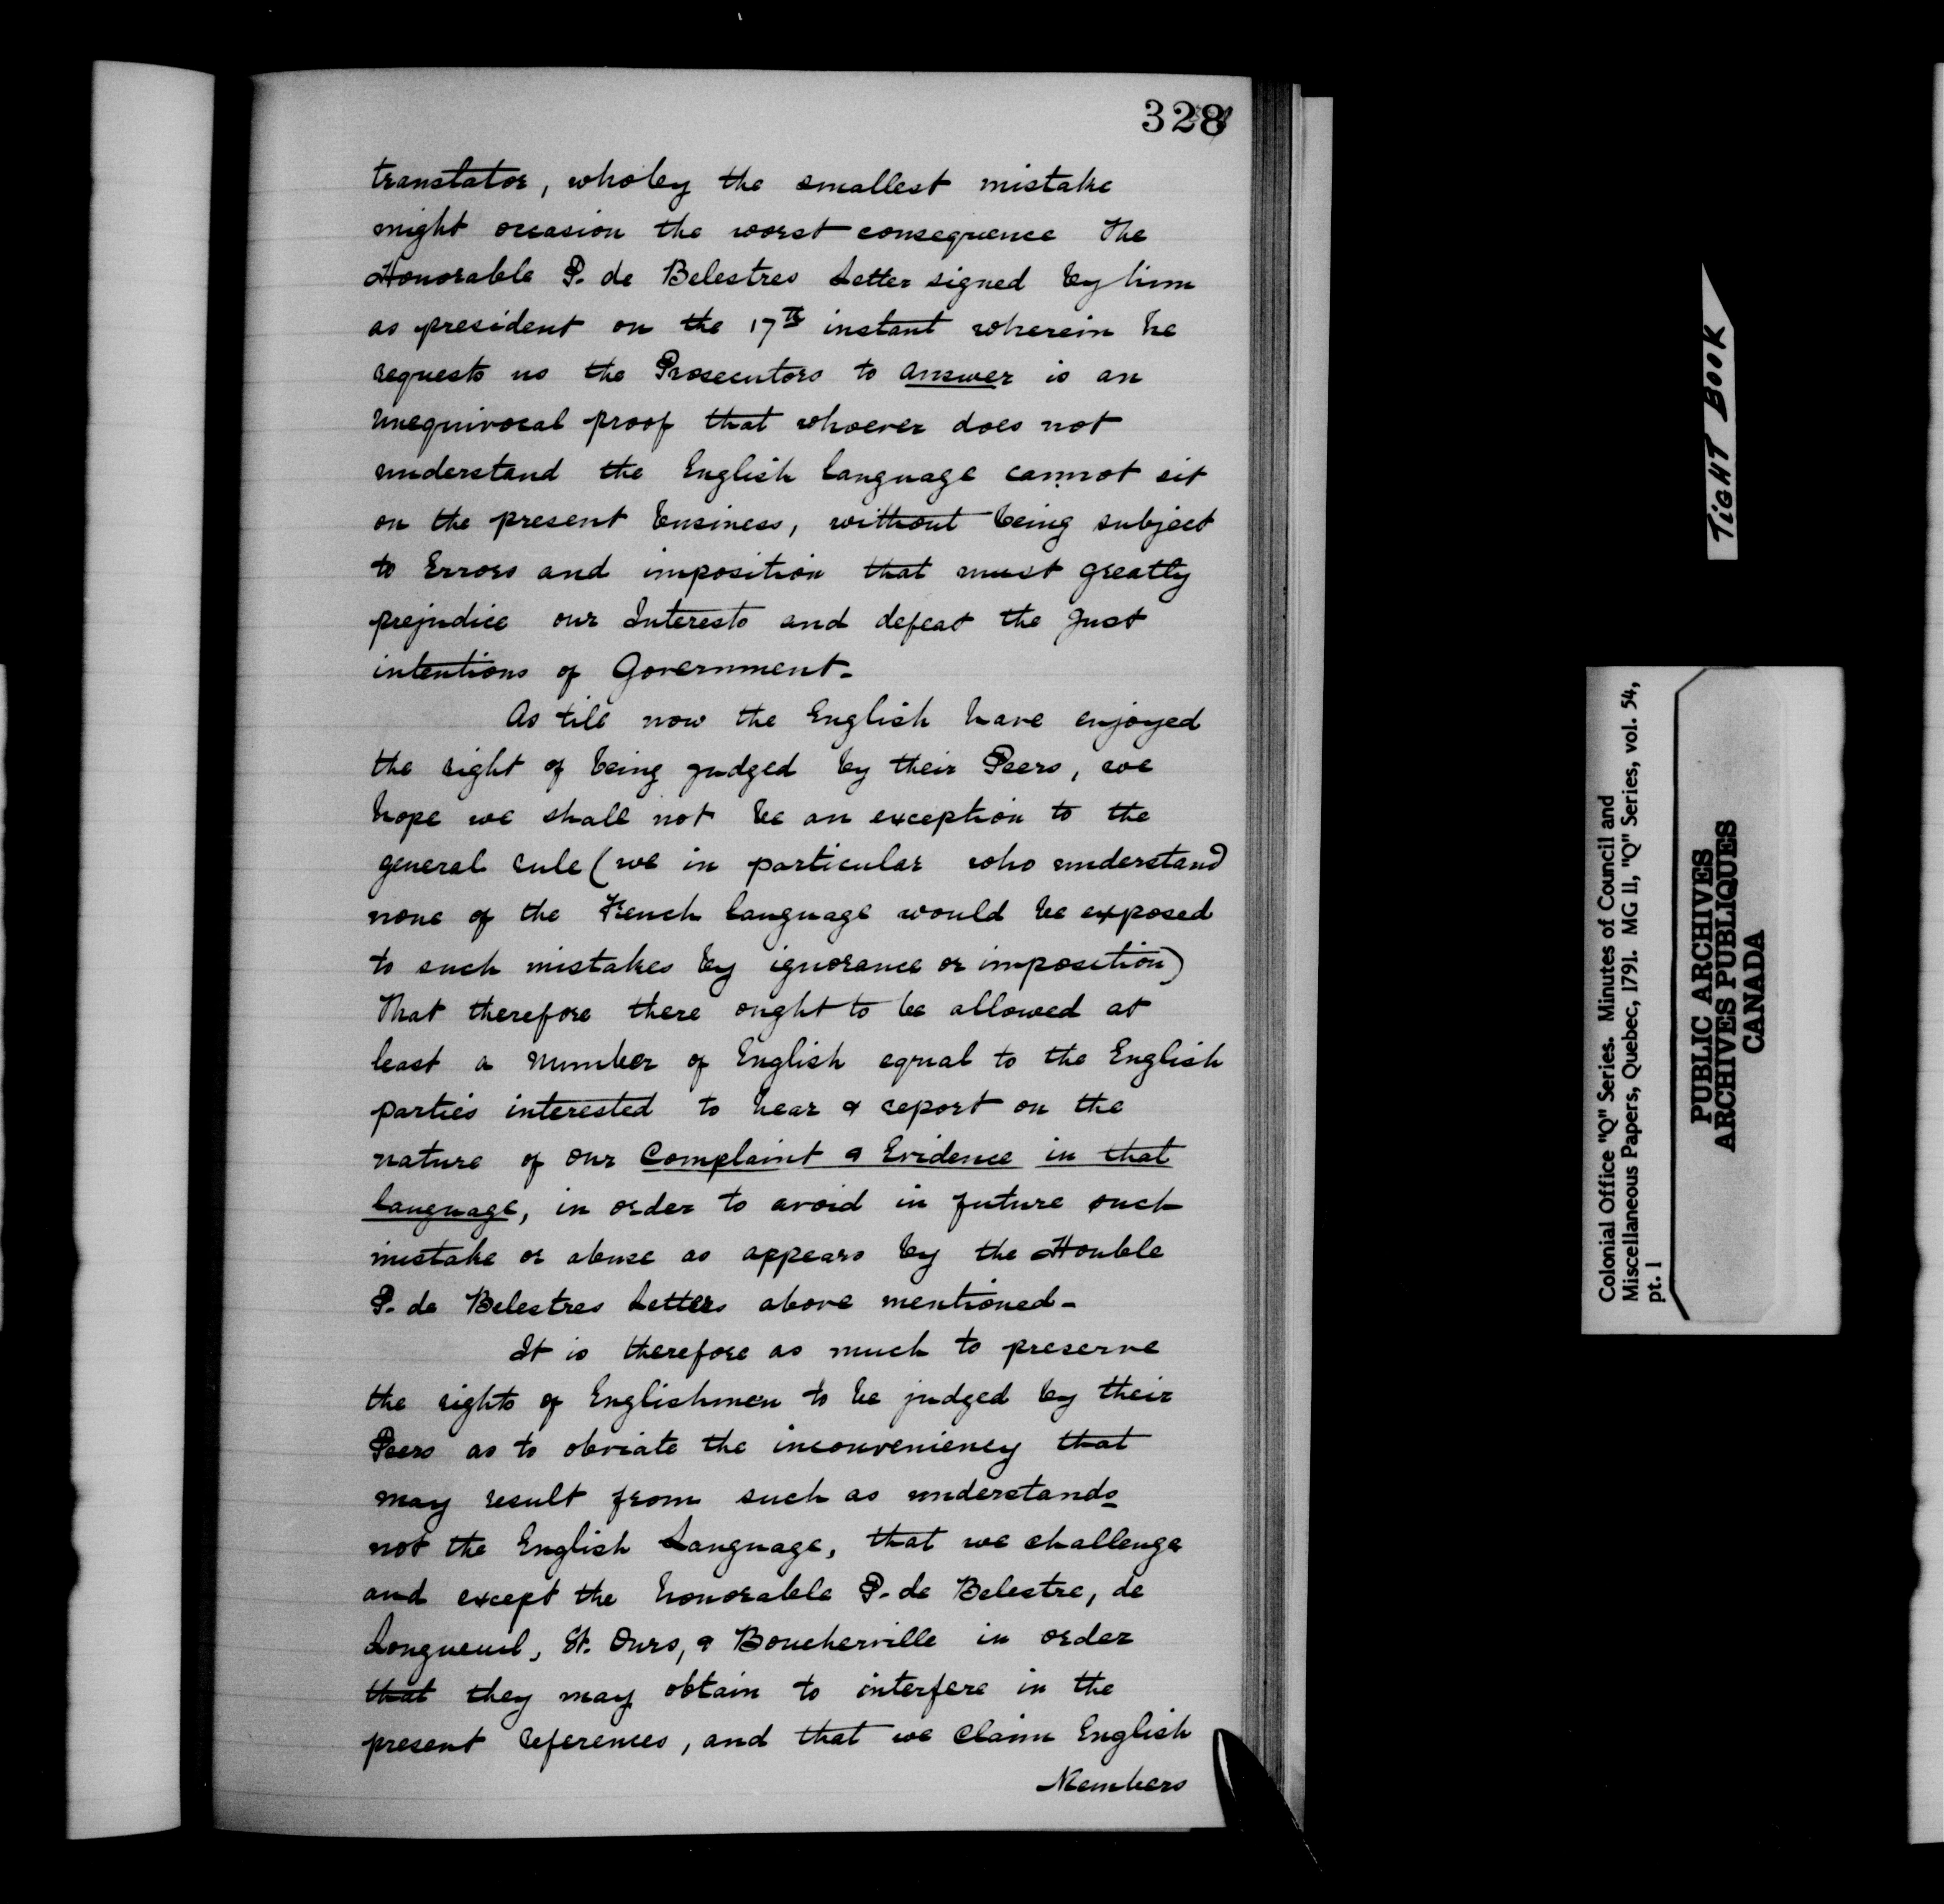 328
translator, whoby the smallest mistake
might occasion the worst consequence The
Honorable P. de Belestres Letter signed by him
as president on the 17th instant wherein he
requests us the Prosecutors to answer is an
unequivocal proof that whoever does not
understand the English language cannot sit
on the present business, without being subject
to Errors and imposition that must greatly
prejudice our Interests and defeat the Just
intentions of Government.
As till now the English have enjoyed
the right of being judged by their Peers, we
hope we shall not be an exception to the
general rule (we in particular who understand
none of the French language would be exposed
to such mistakes by ignorance or imposition)
That therefore there ought to be allowed at
least a Number of English equal to the English
parties interested to hear & report on the
nature of our Complaint & Evidence in that
language, in order to avoid in future such
mistake or abuse as appears by the Honble
P. de Belestres Letters above mentioned -
It is therefore as much to preserve
the rights of Englishmen to be judged by their
Peers as to obviate the inconveniency that
may result from such as understands
not the English Language, that we challenge
and except the honorable P. de Belestre, de
Longueuil, St. Ours, & Boucherville in order
that they may obtain to interfere in the
present references, and that we Claim English
Members
TIGHT BOOK
Colonial Office "Q" Series. Minutes of Council and
Miscellaneous Papers, Quebec, 1791. MG 11, "Q" Series, vol. 54,
pt. 1
PUBLIC ARCHIVES
ARCHIVES PUBLIQUES
CANADA